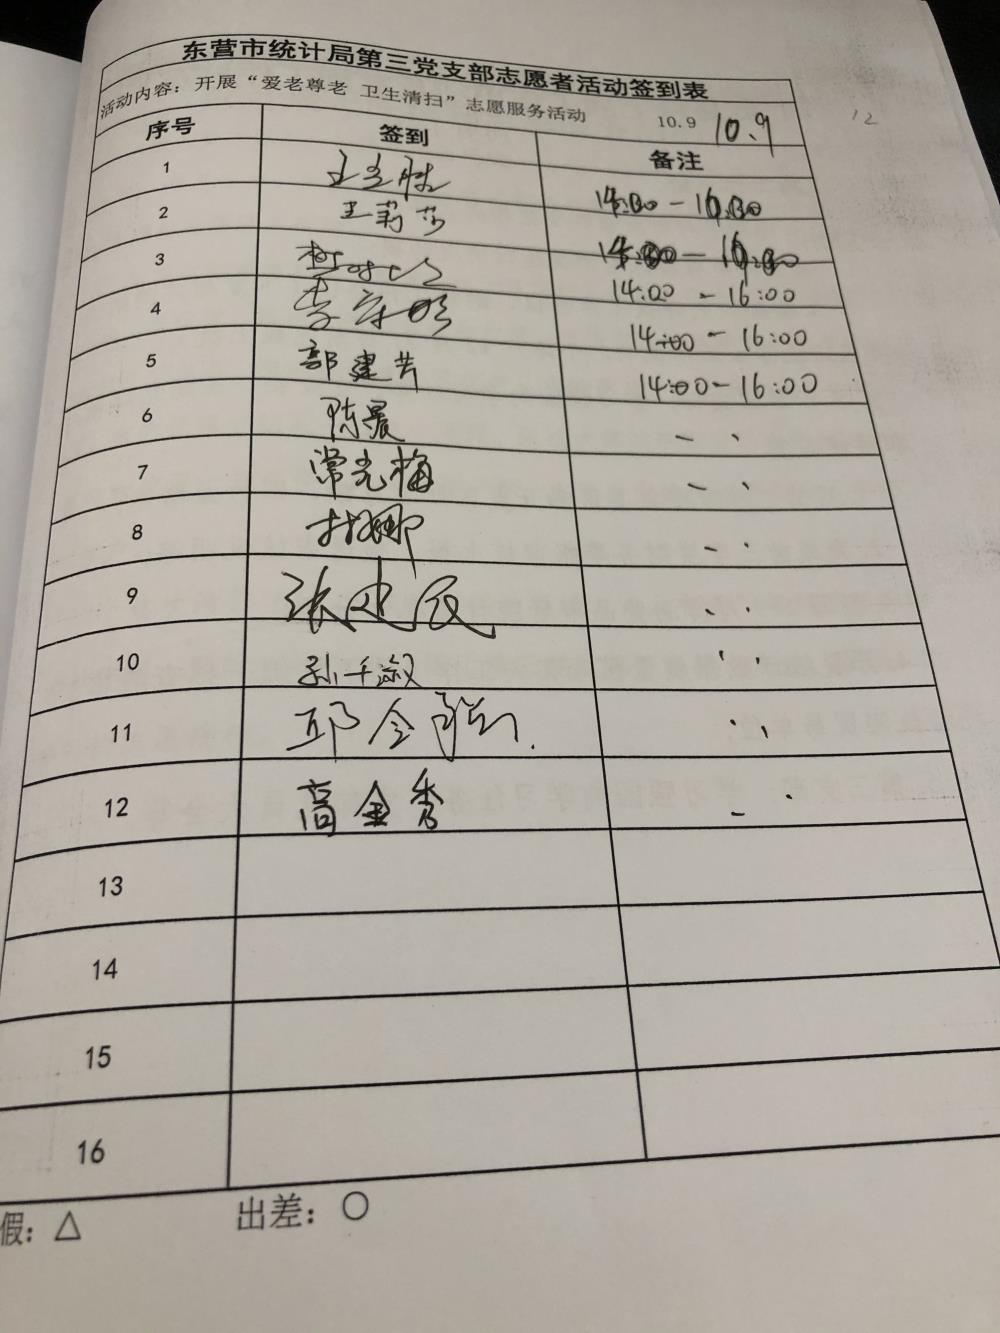 东营市统计局第三党支部志愿者活动签到表
活动内容：开展“爱老尊老 卫生清扫”志愿服务活动 10.9 10.9
12
序号 签到 备注
1 14:00-16:00
2 王莉莎 14:00-16:00
3 14:00-16:00
4 14:00-16:00
5 郭建芳 14:00-16:00
6 陈晨
7 常光梅
8
9 张建民
10
11 邱令
12 高金秀
13
14
15
16
假：△ 出差：○